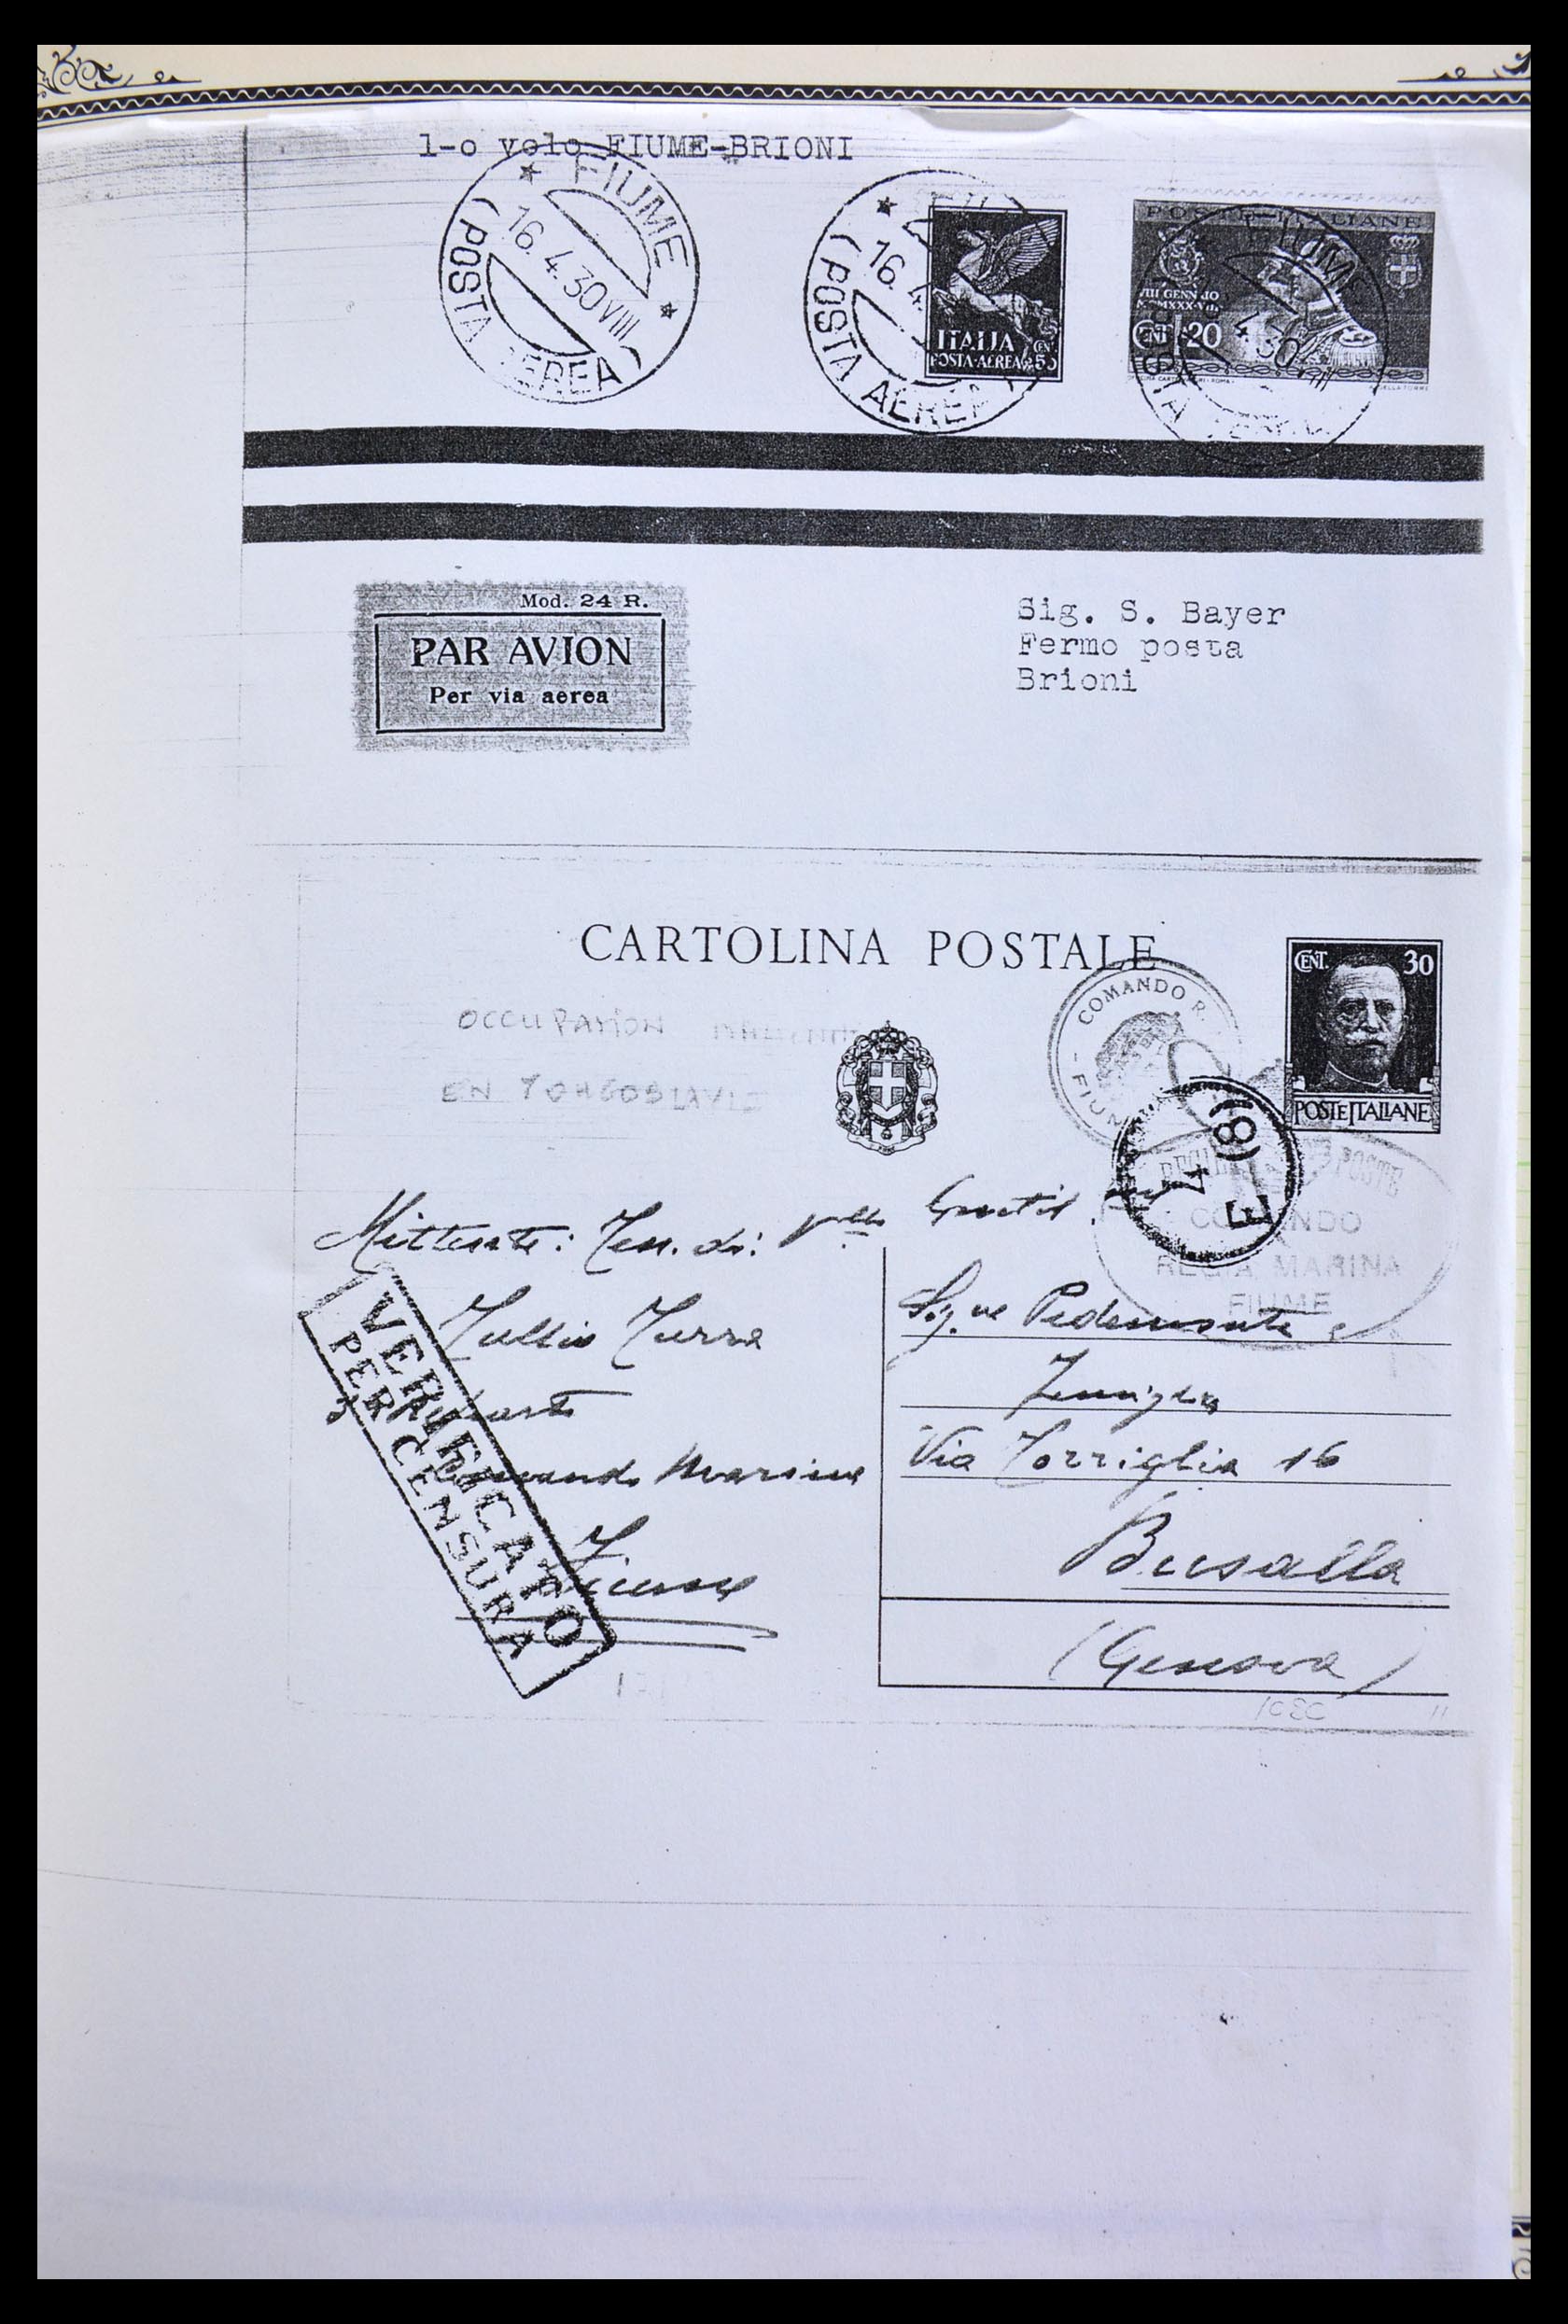 1-o volo FIUME-BRIONI
FIUME
16.4.30 VIII
(POSTA AEREA)
16.4
(POSTA AEREA
ITALIA
POSTA·AEREA CEN 50
POSTE ITALIANE
VIII GENNAIO
MCMXXX·VIII
CENT 20
FIUME
4.30.VIII
Mod. 24 R.
PAR AVION
Per via aerea
Sig. S. Bayer
Fermo posta
Brioni
CARTOLINA POSTALE
CENT. 30
POSTE ITALIANE
COMANDO R.
- FIUME
OCCUPATION
EN YOUGOSLAVIE
(8)
4
E
POSTE
COMANDO
REGIA MARINA
FIUME
Mittente: Ten. di: Vllo
Tullio Turra
Comando Marina
Fiume
VERIFICATO
PER CENSURA
Pedemonte e
Famiglia
Via Torriglia 16
Busalla
(Genova)